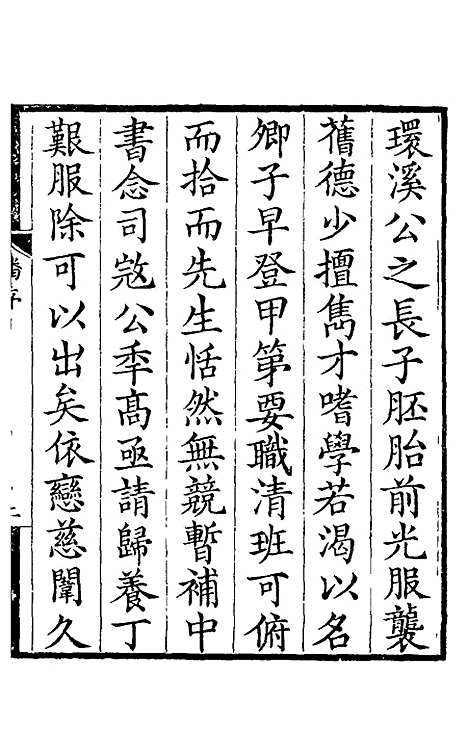 環溪公之長子胚胎前光服襲
舊德少擅雋才嗜學若渴以名
卿子早登甲第要職清班可俯
而拾而先生恬然無競暫補中
書念司寇公秊髙亟請歸養丁
艱服除可以出矣依戀慈闈久
潘序